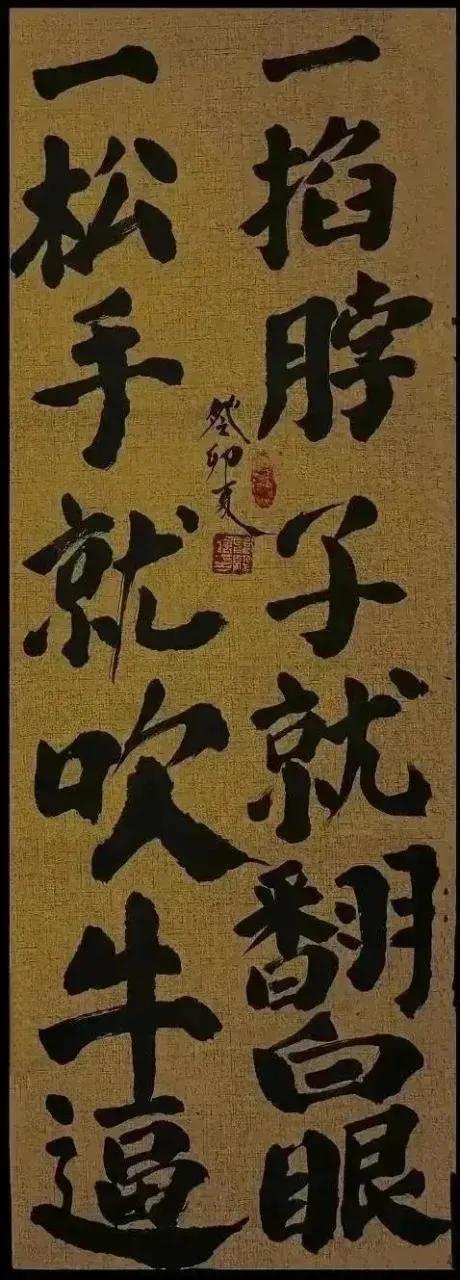 一掐脖子就翻白眼
一松手就吹牛逼
癸卯夏